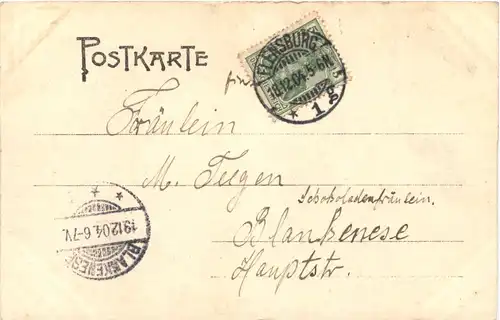 POSTKARTE
FLENSBURG
18.12.04.5-6N.
* 1 g *
Fräulein
M. Tegen
Schokoladenfräulein.
Blankenese
Hauptstr.
19.12.04.6-7V.
BLANKENESE